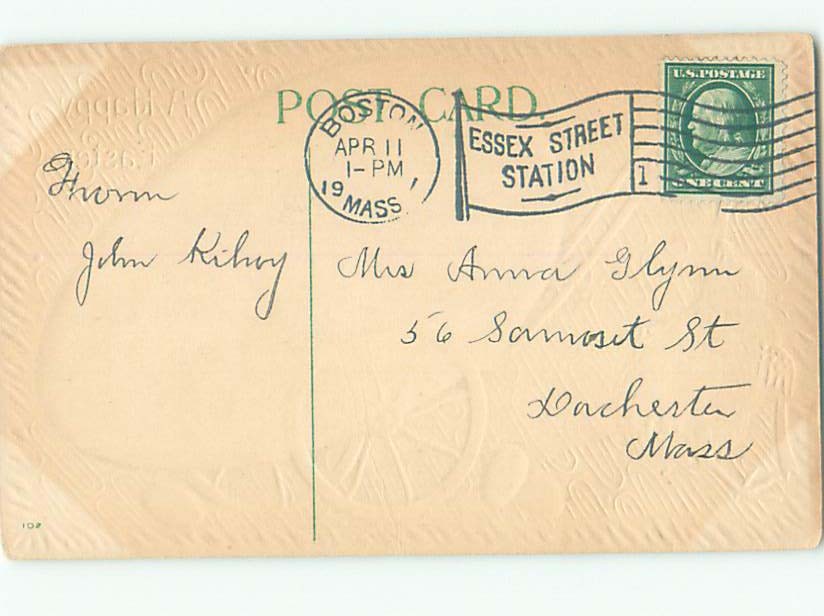 A Happy
Easter
POST CARD.
BOSTON
APR 11
1-PM
19
MASS.
ESSEX STREET
STATION
1
U.S. POSTAGE
ONE CENT
From
John Kilroy
Mrs Anna Glynn
56 Somerset St
Dorchester
Mass
102